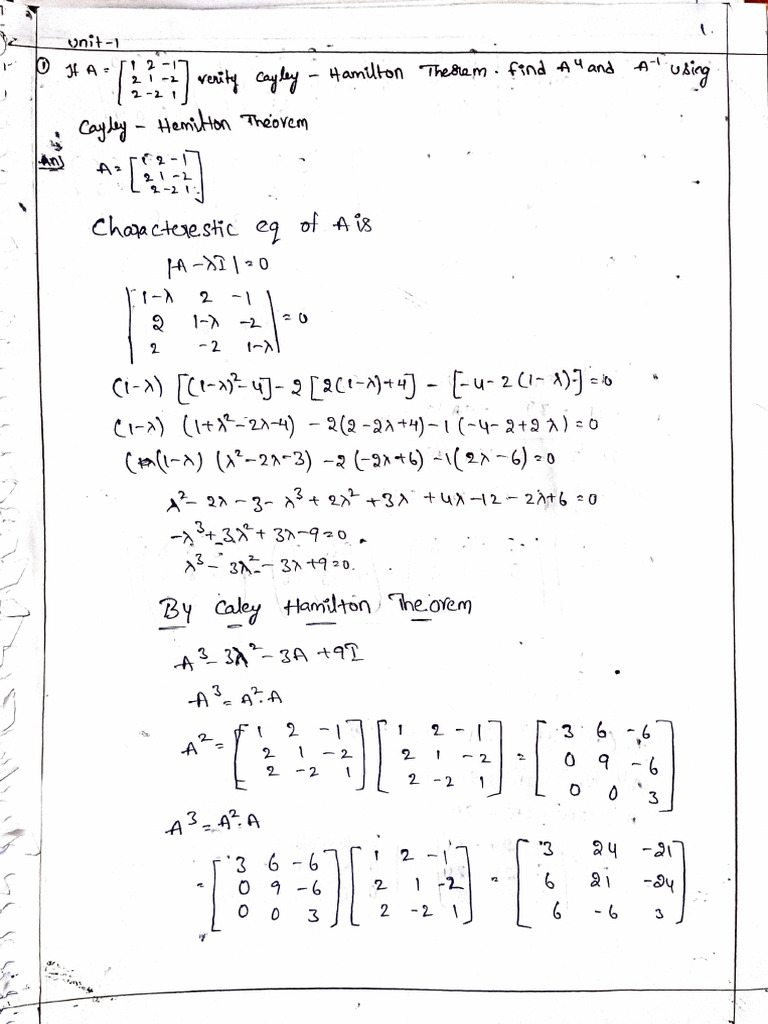 1.
Unit-1
① If A = [1 2 -1; 2 1 -2; 2 -2 1] verify Cayley - Hamilton Theorem. find A⁴ and A⁻¹ using
Cayley - Hemilton Theorem
Ans A = [1 2 -1; 2 1 -2; 2 -2 1]
Characterestic eq of A is
|A - λI| = 0
|1-λ 2 -1; 2 1-λ -2; 2 -2 1-λ| = 0
(1-λ) [(1-λ)² - 4] - 2 [2(1-λ)+4] - [-4-2(1-λ)] = 0
(1-λ) (1+λ²-2λ-4) - 2(2-2λ+4) - 1(-4-2+2λ) = 0
(1-λ) (λ²-2λ-3) - 2(-2λ+6) - 1(2λ-6) = 0
λ² - 2λ - 3 - λ³ + 2λ² + 3λ + 4λ - 12 - 2λ + 6 = 0
-λ³ + 3λ² + 3λ - 9 = 0.
λ³ - 3λ² - 3λ + 9 = 0.
By Caley Hamilton Theorem
A³ - 3λ² - 3A + 9I
A³ = A².A
A² = [1 2 -1; 2 1 -2; 2 -2 1] [1 2 -1; 2 1 -2; 2 -2 1] = [3 6 -6; 0 9 -6; 0 0 3]
A³ = A².A
= [3 6 -6; 0 9 -6; 0 0 3] [1 2 -1; 2 1 -2; 2 -2 1] = [3 24 -21; 6 21 -24; 6 -6 3]